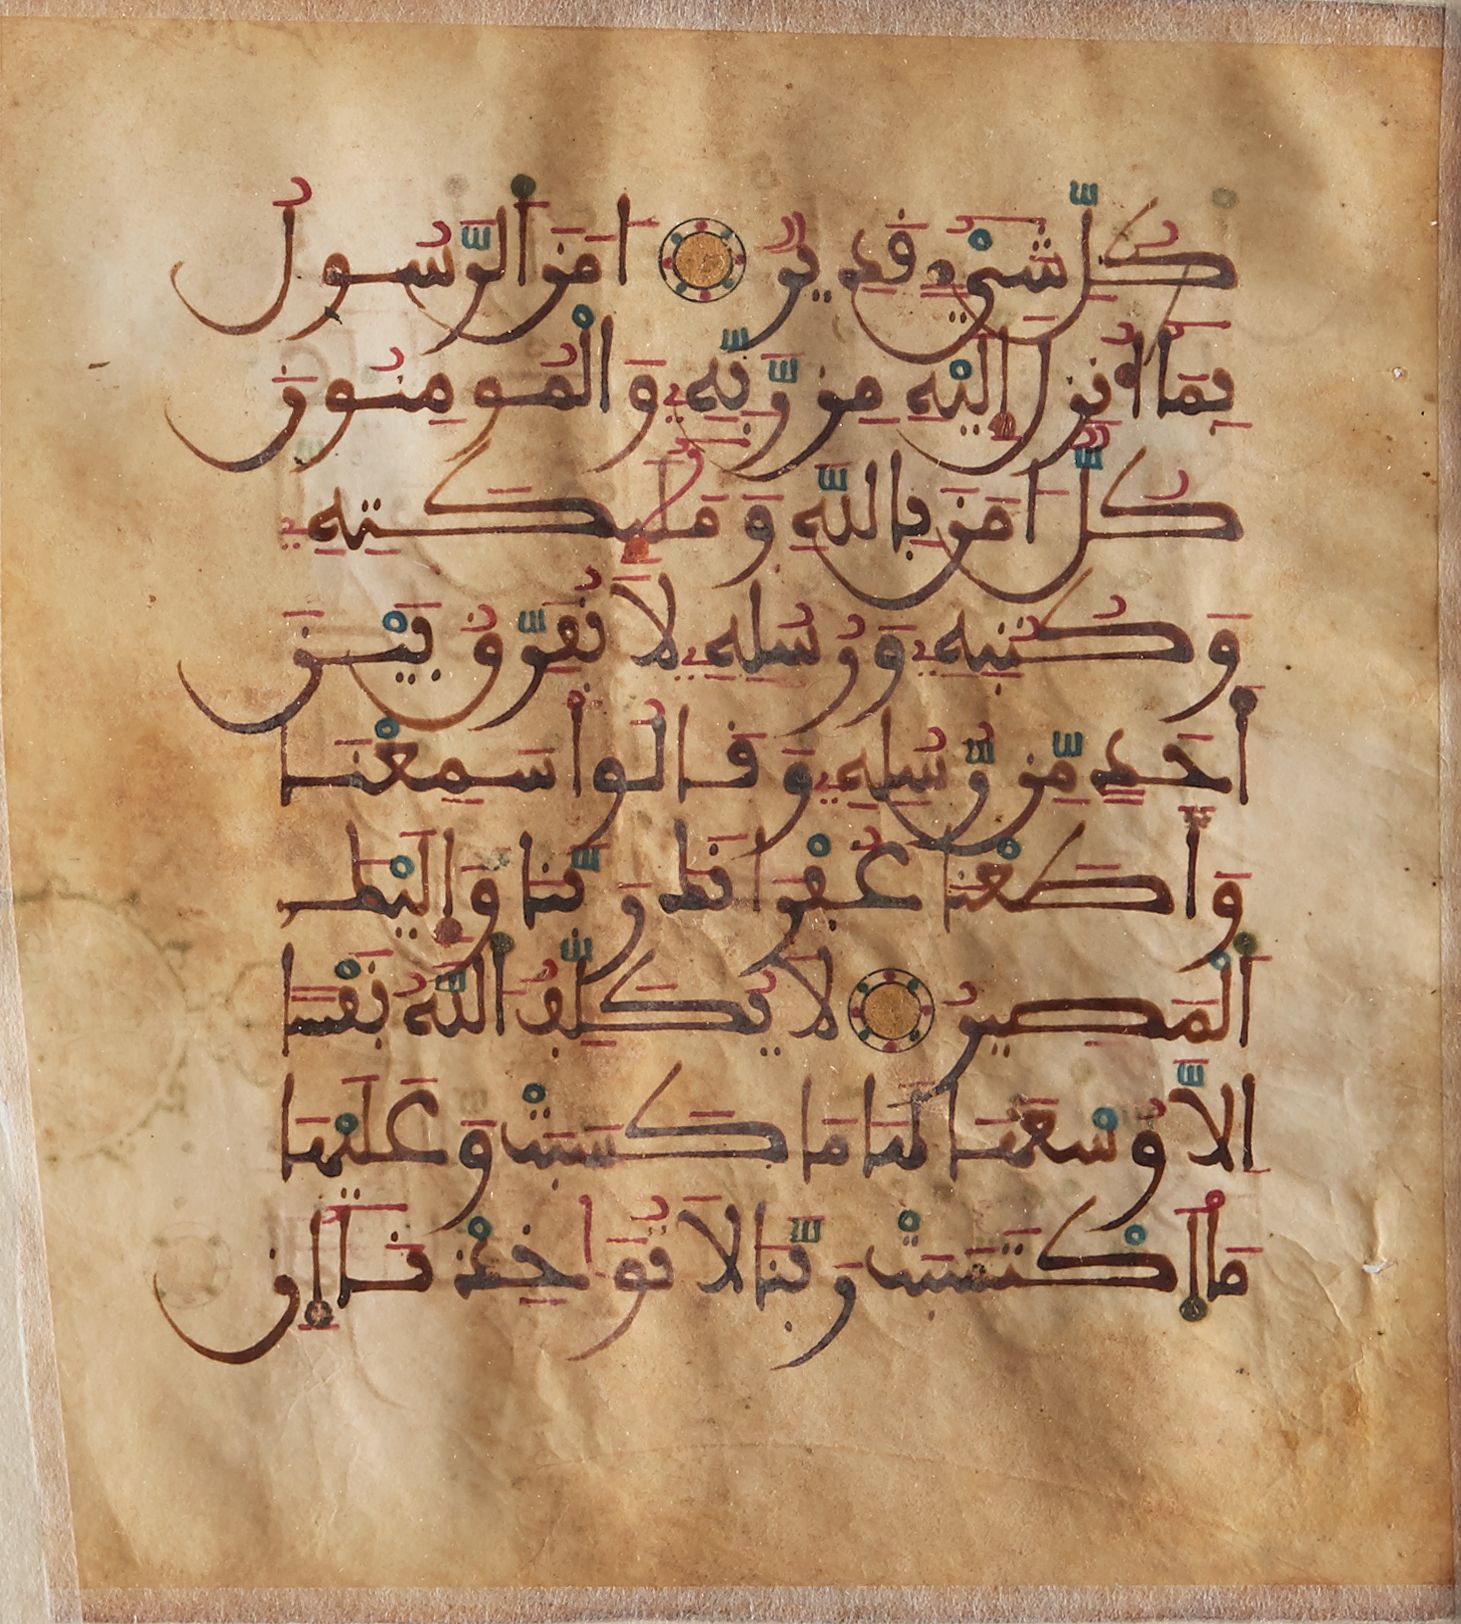 كُلِّ شَيْءٍ قَدِيرٌ ۝ ءَامَنَ ٱلرَّسُولُ
بِمَا أُنزِلَ إِلَيْهِ مِن رَّبِّهِۦ وَالْمُومِنُونَ
كُلٌّ ءَامَنَ بِاللَّهِ وَمَلَٰٓئِكَتِهِۦ
وَكُتُبِهِۦ وَرُسُلِهِۦ لَا نُفَرِّقُ بَيْنَ
أَحَدٍ مِّن رُّسُلِهِۦ وَقَالُوا سَمِعْنَا
وَأَطَعْنَا غُفْرَانَكَ رَبَّنَا وَإِلَيْكَ
ٱلْمَصِيرُ ۝ لَا يُكَلِّفُ ٱللَّهُ نَفْسًا
اِلَّا وُسْعَهَا لَهَا مَا كَسَبَتْ وَعَلَيْهَا
مَا ٱكْتَسَبَتْ رَبَّنَا لَا تُوَاخِذْنَا إِن